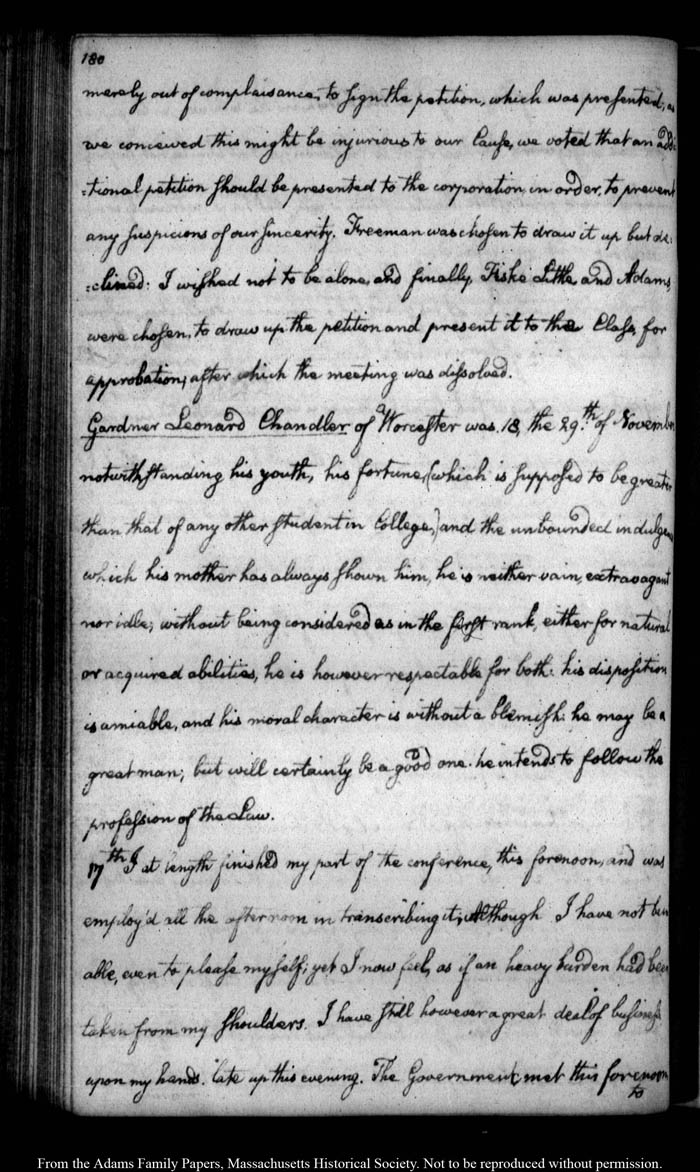 180
merely out of complaisance, to sign the petition, which was presented; as
we conceived this might be injurious to our Cause, we voted that an addi
:tional petition should be presented to the corporation, in order, to prevent
any suspicions of our sincerity. Freeman was chosen to draw it up but de:
:clined: I wished not to be alone, and finally, Fiske Little, and Adams,
were chosen, to draw up the petition and present it to the Class, for
approbation; after which the meeting was dissolved.
Gardner Leonard Chandler of Worcester was 18, the 29.th of November
notwithstanding his youth, his fortune, (which is supposed to be greater
than that of any other student in College,) and the unbounded indulgence
which his mother has always shown him, he is neither vain, extravagant
nor idle; without being considered as in the first rank, either for natural
or acquired abilities, he is however respectable for both: his disposition
is amiable, and his moral character is without a blemish: he may be a
great man; but will certainly be a good one. he intends to follow the
profession of the Law.
17th I at length finished my part of the conference, this forenoon, and was
employ'd all the afternoon in transcribing it; Although I have not been
able, even to please myself; yet I now feel, as if an heavy burden had been
taken from my shoulders. I have still however a great deal of business
upon my hands. late up this evening. The Government met this forenoon
to
From the Adams Family Papers, Massachusetts Historical Society. Not to be reproduced without permission.